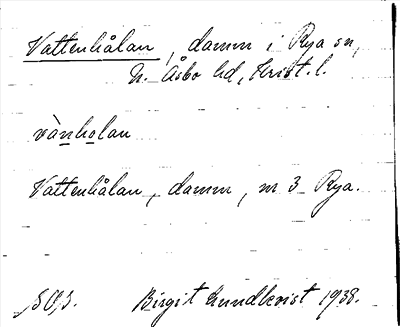 Vattenhålan, damm i Rya sn,
N. Åsbo hd, Krist. l.
vànholan
Vattenhålan, damm, nr 3 Rya.
Birgit Lundkvist 1938.